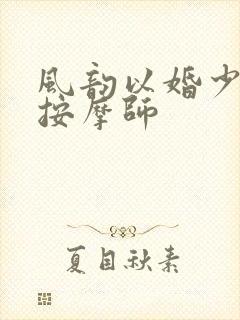 風韵以婚少
按摩師
夏目秋素